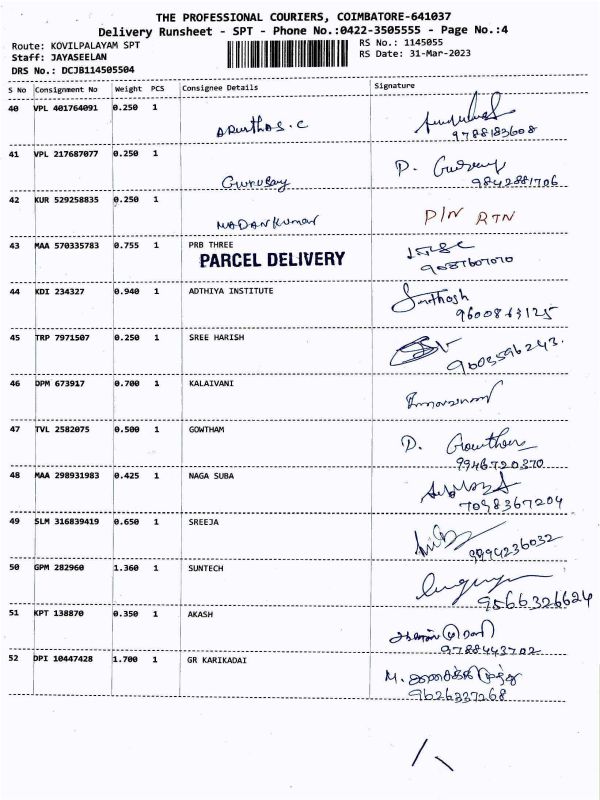 THE PROFESSIONAL COURIERS, COIMBATORE-641037
Delivery Runsheet - SPT - Phone No.:0422-3505555 - Page No.:4
Route: KOVILPALAYAM SPT
RS No.: 1145055
Staff: JAYASEELAN
RS Date: 31-Mar-2023
DRS No.: DCJB114505504
S No Consignment No Weight PCS Consignee Details Signature
40 VPL 401764091 0.250 1
9788183608
41 VPL 217687077 0.250 1
Gurusay
9842881706
42 KUR 529258835 0.250 1
MADAN Kumar P/N RTN
43 MAA 570335783 0.755 1 PRB THREE
PARCEL DELIVERY
44 KDI 234327 0.940 1 ADTHIYA INSTITUTE Santhosh
9600863125
45 TRP 7971507 0.250 1 SREE HARISH
9603596243.
46 DPM 673917 0.700 1 KALAIVANI
47 TVL 2582075 0.500 1 GOWTHAM D. Gowtham
9946720370
48 MAA 298931983 0.425 1 NAGA SUBA
7098367204
49 SLM 316839419 0.650 1 SREEJA
9994236032
50 GPM 282960 1.360 1 SUNTECH
9566326624
51 KPT 138870 0.350 1 AKASH
9788443702
52 DPI 10447428 1.700 1 GR KARIKADAI M.
9626337268